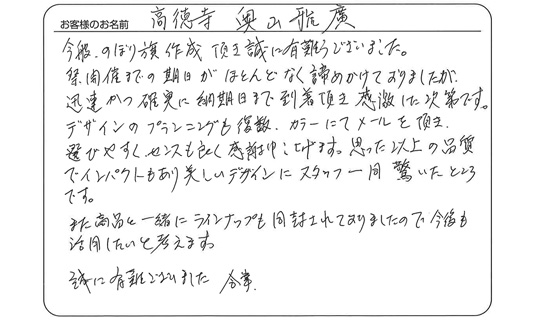 お客様のお名前 高徳寺 奥山雅廣
今般、のぼり旗作成頂き誠に有難うございました。
祭開催までの期日がほとんどなく諦めかけておりましたが、
迅速かつ確実に納期日まで到着頂き感激した次第です。
デザインのプランニングも複数、カラーにてメールを頂き、
選びやすくセンスも良く感謝申し上げます。思った以上の品質
でインパクトもあり美しいデザインにスタッフ一同驚いたところ
です。
また商品と一緒にラインナップも同封されておりましたので今後も
活用したいと考えます。
誠に有難うございました 合掌.